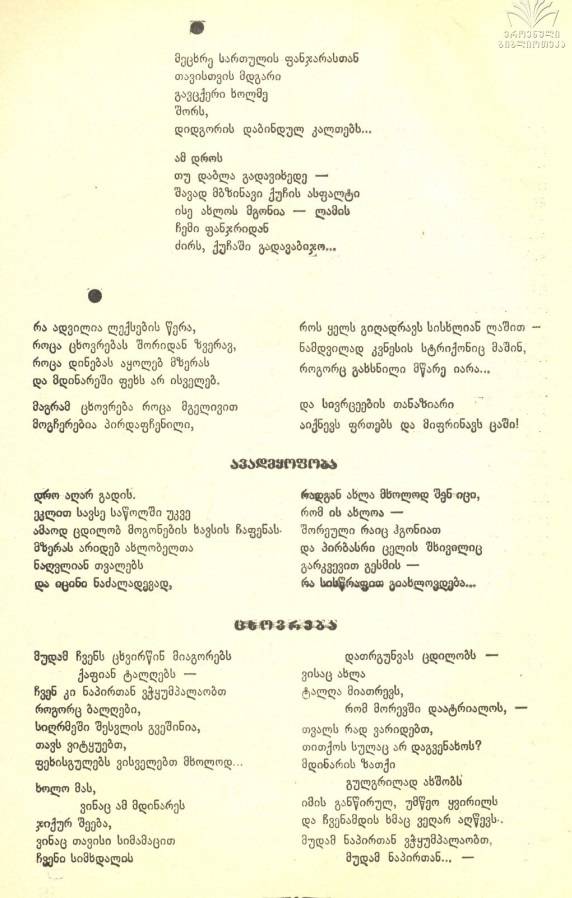 ეროვნული
ბიბლიოთეკა
მეცხრე სართულის ფანჯარასთან
თავისთვის მდგარი
გავცქერი ხოლმე
შორს,
დიდგორის დაბინდულ კალთებს...
ამ დროს
თუ დაბლა გადავიხედე —
შავად მბზინავი ქუჩის ასფალტი
ისე ახლოს მგონია — ლამის
ჩემი ფანჯრიდან
ძირს, ქუჩაში გადავაბიჯო...
რა ადვილია ლექსების წერა,
როცა ცხოვრებას შორიდან ზვერავ,
როცა დინებას აყოლებ მზერას
და მდინარეში ფეხს არ ისველებ.
მაგრამ ცხოვრება როცა მგელივით
მოგჩერებია პირდაფჩენილი,
როს ყელს გიღადრავს სისხლიან ლაშით —
ნამდვილად კვნესის სტრიქონიც მაშინ,
როგორც გახსნილი მწარე იარა...
და სივრცეების თანაზიარი
აიქნევს ფრთებს და მიფრინავს ცაში!
ავადმყოფობა
დრო აღარ გადის.
ეკლით სავსე საწოლში უკვე
ამაოდ ცდილობ მოგონების ხავსის ჩაფენას.
მზერას არიდებ ახლობელთა
ნაღვლიან თვალებს
და იცინი ნაძალადევად,
რადგან ახლა მხოლოდ შენ იცი,
რომ ის ახლოა —
შორეული რაიც ჰგონიათ
და პირბასრი ცელის შხივილიც
გარკვევით გესმის —
რა სისწრაფით გიახლოვდება...
ცხოვრება
მუდამ ჩვენს ცხვირწინ მიაგორებს
ქაფიან ტალღებს —
ჩვენ კი ნაპირთან ვჭყუმპალაობთ
როგორც ბალღები,
სიღრმეში შესვლის გვეშინია,
თავს ვიტყუებთ,
ფეხისგულებს ვისველებთ მხოლოდ...
ხოლო მას,
ვინაც ამ მდინარეს
ჯიქურ შეება,
ვინაც თავისი სიმამაცით
ჩვენი სიმხდალის
დათრგუნვას ცდილობს —
ვისაც ახლა
ტალღა მიათრევს,
რომ მორევში დაატრიალოს, —
თვალს რად ვარიდებთ,
თითქოს სულაც არ დაგვენახოს?
მდინარის ზათქი
გულგრილად ახშობს
იმის განწირულ, უმწეო ყვირილს
და ჩვენამდის ხმაც ვეღარ აღწევს.
მუდამ ნაპირთან ვჭყუმპალაობთ,
მუდამ ნაპირთან... —